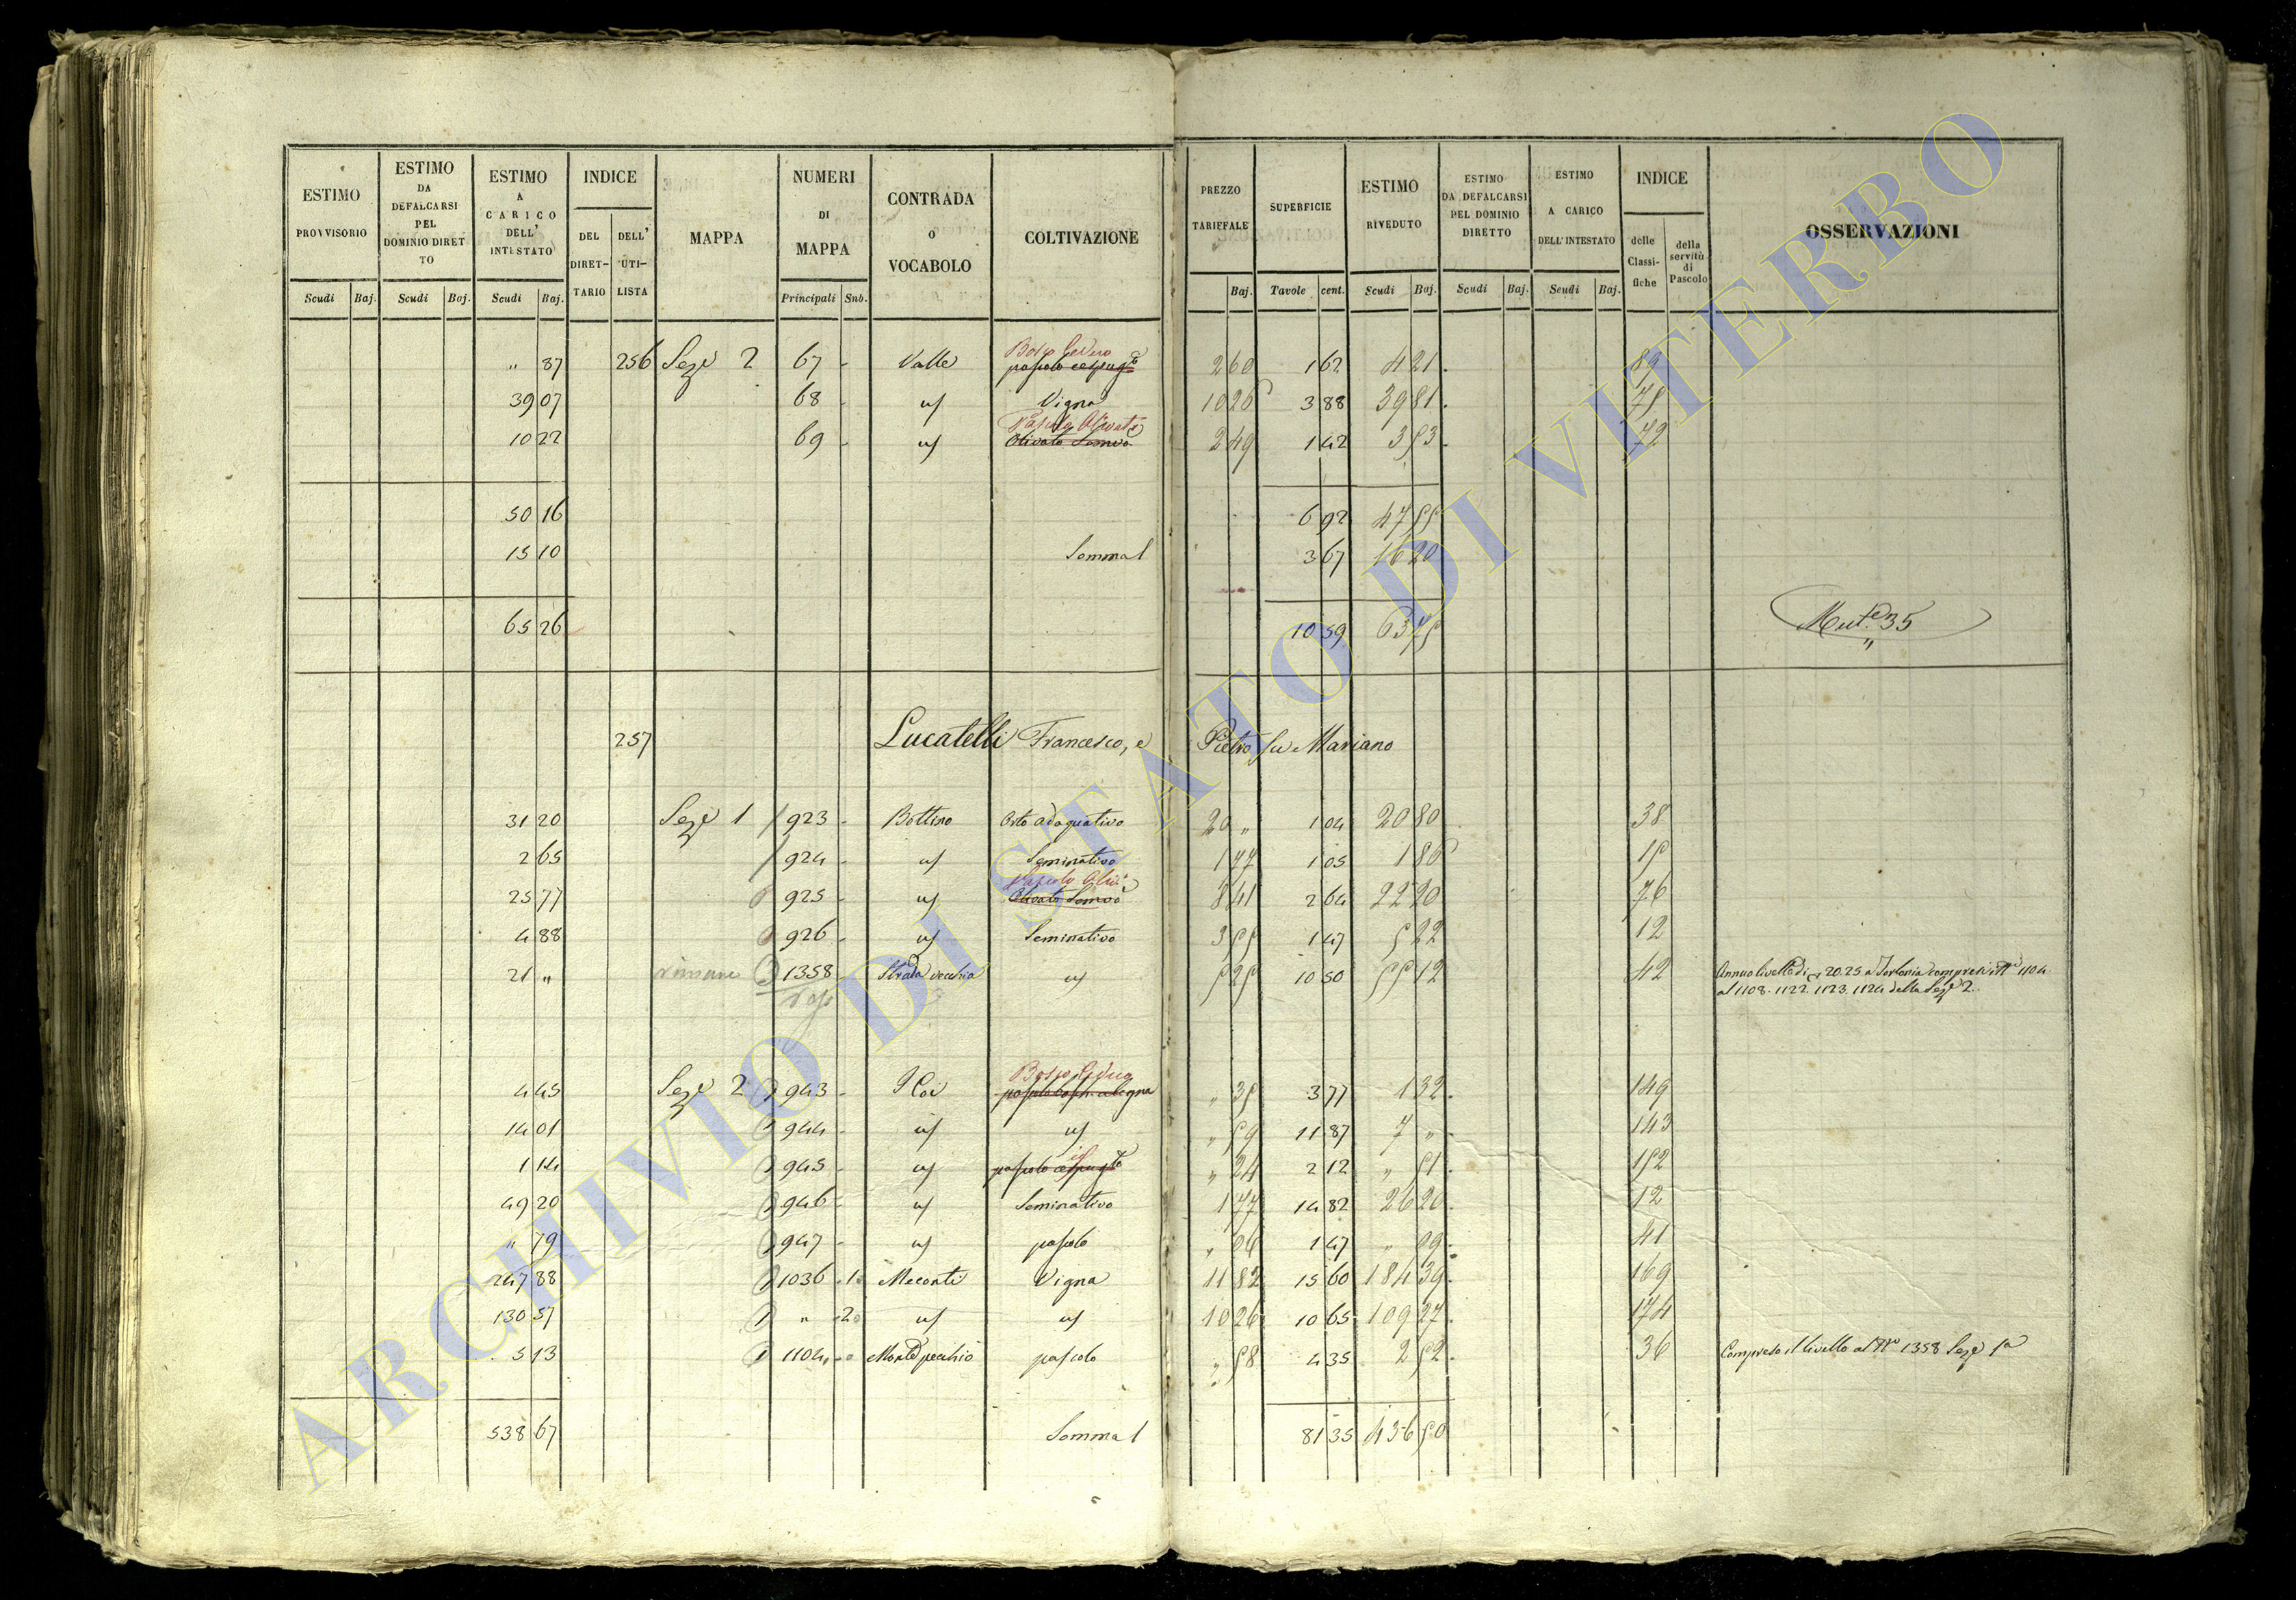 ESTIMO PROVVISORIO Scudi Baj.
ESTIMO DA DEFALCARSI PEL DOMINIO DIRET TO Scudi Baj.
ESTIMO A CARICO DELL' INTESTATO Scudi Baj.
INDICE DEL DIRET-TARIO DELL' UTI-LISTA
MAPPA
NUMERI DI MAPPA Principali Sub.
CONTRADA O VOCABOLO
COLTIVAZIONE
PREZZO TARIEFALE Baj.
SUPERFICIE Tavole cent.
ESTIMO RIVEDUTO Scudi Baj.
ESTIMO DA DEFALCARSI PEL DOMINIO DIRETTO Scudi Baj.
ESTIMO A CARICO DELL' INTESTATO Scudi Baj.
INDICE delle Classi-fiche della servitù di Pascolo
OSSERVAZIONI
" 87 256 Seze 2 67 - Valle 2 60 1 62 4 21 89
39 07 68 - u/ Vigna 10 26 3 88 39 81 75
10 22 69 - u/ Olivato Semvo 2 49 1 42 3 53 72
50 16 6 92 47 55
15 10 Somma 1 3 67 16 20
65 26 10 59 63 75
Mute 35
257 Lucatelli Francesco, e Pietro fu Mariano
31 20 Seze 1 923 - Bottino Orto adaquativo 20 " 1 04 20 80 38
2 65 924 - u/ Seminativo 1 77 1 05 1 86 15
25 77 925 - u/ Olivato Semvo 8 41 2 64 22 20 76
4 88 926 - u/ Seminativo 3 55 1 47 5 22 12
21 " rimane 1358 Strada vecchia u/ 5 25 10 50 55 12 42 Annuo livello di 20.25 a Torlonia compresi i Ni 1104
al 1108. 1122. 1123. 1124 della Seze 2.
4 45 Seze 2 943 - Bosco Ceduo " 35 3 77 1 32 149
14 01 944 - u/ u/ " 59 11 87 7 " 143
1 14 945 - u/ pascolo cespugto " 24 2 12 " 51 152
49 20 946 - u/ Seminativo 1 77 14 82 26 20 12
" 79 947 - u/ pascolo " 06 1 47 " 09 41
247 88 1036 1 Meconti Vigna 11 82 15 60 184 39 169
130 57 " 2 u/ u/ 10 26 10 65 109 27 174
5 13 1104 Monte pecchio pascolo " 58 4 35 2 52 36 Compreso il livello al No 1358 Seze 1a
538 67 Somma 1 81 35 436 50
ARCHIVIO DI STATO DI VITERBO